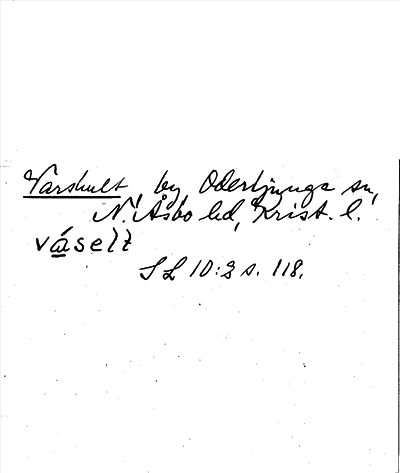 Varshult, by, Oderljunga sn,
N. Åsbo hd, Krist. l.
váselt
SL 10:2 s. 118.